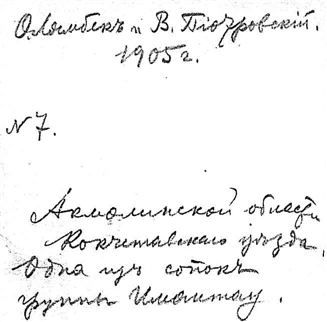 О. Ломбекъ и В. Піотровскій.
1905 г.
N 7.
Акмолинской области
Кокчетавскаго уѣзда.
Одна изъ сопокъ
группы Имантау.